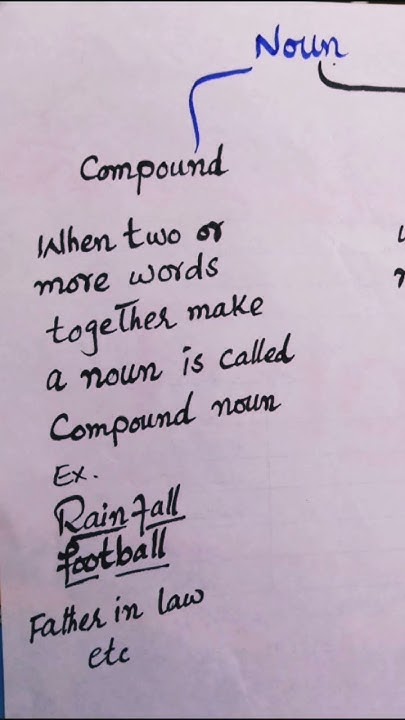 Noun
Compound
When two or
more words
together make
a noun is called
Compound noun
Ex.
Rainfall
football
Father in law
etc